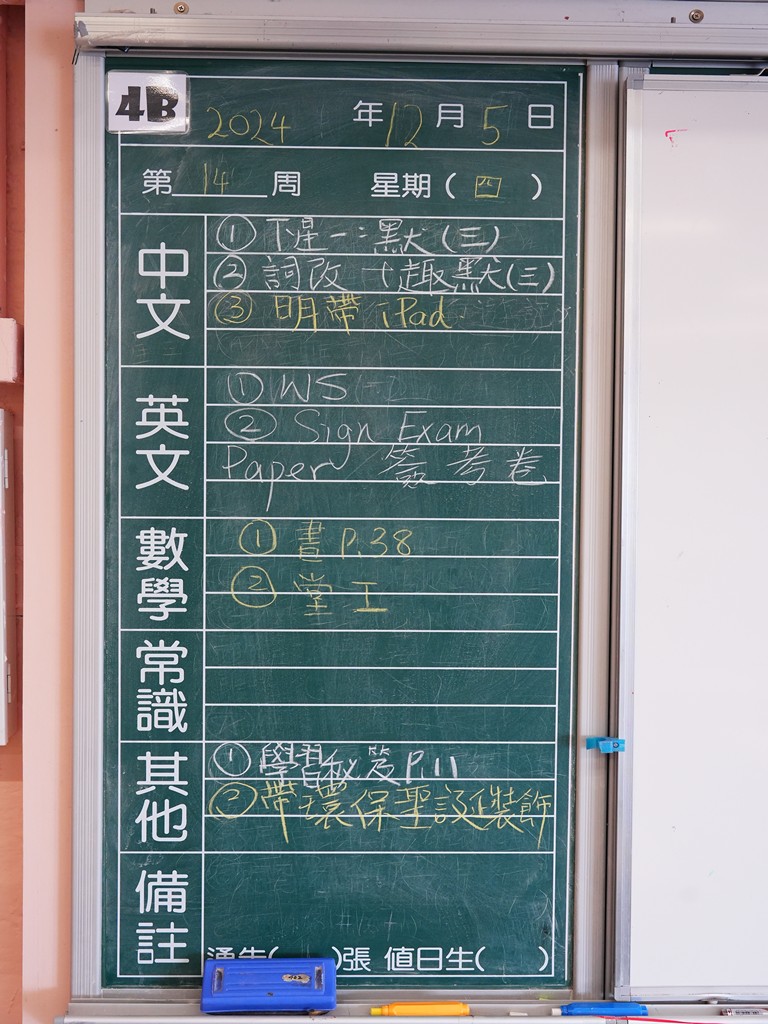 4B
2024 年 12 月 5 日
第 14 周 星期 ( 四 )
中文
① 下星一:默(三)
② 詞改 + 趣默(三)
③ 明帶 iPad
英文
① WS
② Sign Exam
Paper 簽考卷
數學
① 書 P.38
② 堂工
常識
其他
① 學習秘笈 P.11
② 帶環保聖誕裝飾
備註
通告( )張 值日生( )